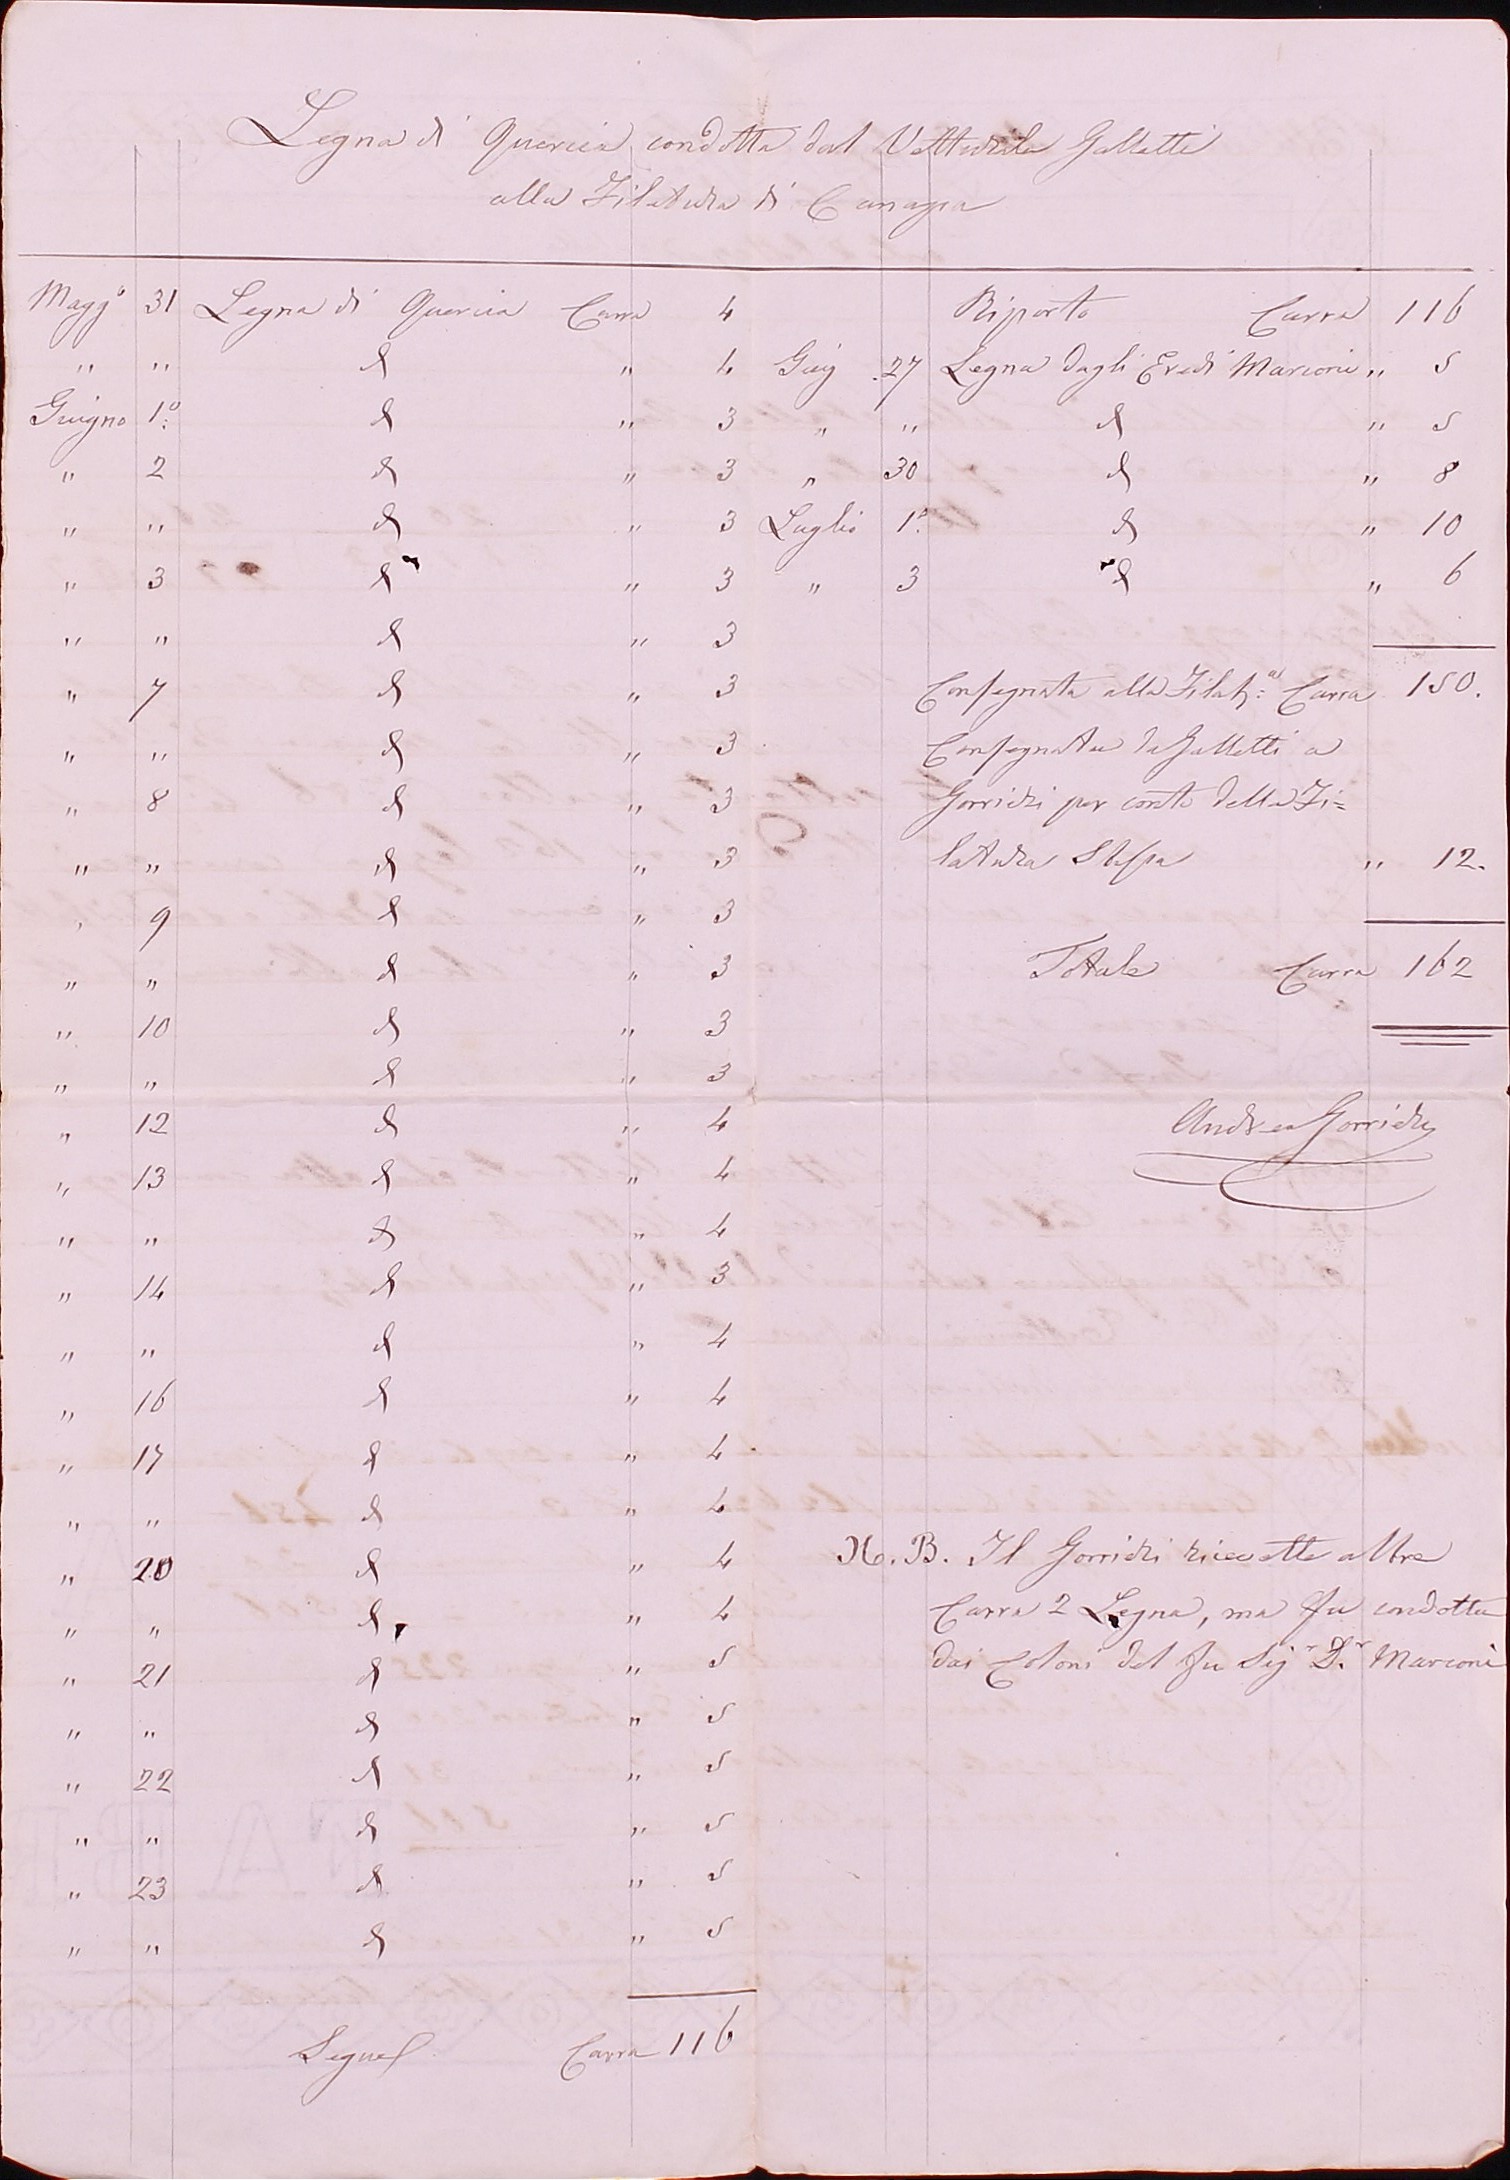 Legna di Quercia condotta dal Vetturile Galletti
alla Filatura di Canapa
Magg.o 31 Legna di Quercia Carra 4
" " d " 4
Giugno 1.o d " 3
" 2 d " 3
" " d " 3
" 3 d " 3
" " d " 3
" 7 d " 3
" " d " 3
" 8 d " 3
" " d " 3
" 9 d " 3
" " d " 3
" 10 d " 3
" " d " 3
" 12 d " 4
" 13 d " 4
" " d " 4
" 14 d " 3
" " d " 4
" 16 d " 4
" 17 d " 4
" " d " 4
" 20 d " 4
" " d " 4
" 21 d " 5
" " d " 5
" 22 d " 5
" " d " 5
" 23 d " 5
" " d " 5
Segue Carra 116
Riporto Carra 116
Giug 27 Legna dagli Eredi Marconi " 5
" " d " 5
" 30 d " 8
Luglio 1.o d " 10
" 3 d " 6
Consegnata alla Filat.a Carra 150.
Consegnata da Galletti a
Gorridi per conto della Fi=
latura Stessa " 12.
Totale Carra 162
Andrea Gorridi
N.B. Il Gorridi ricevette altre
Carra 2 Legna, ma fu condotta
dai Coloni del fu Sig.r D.r Marconi